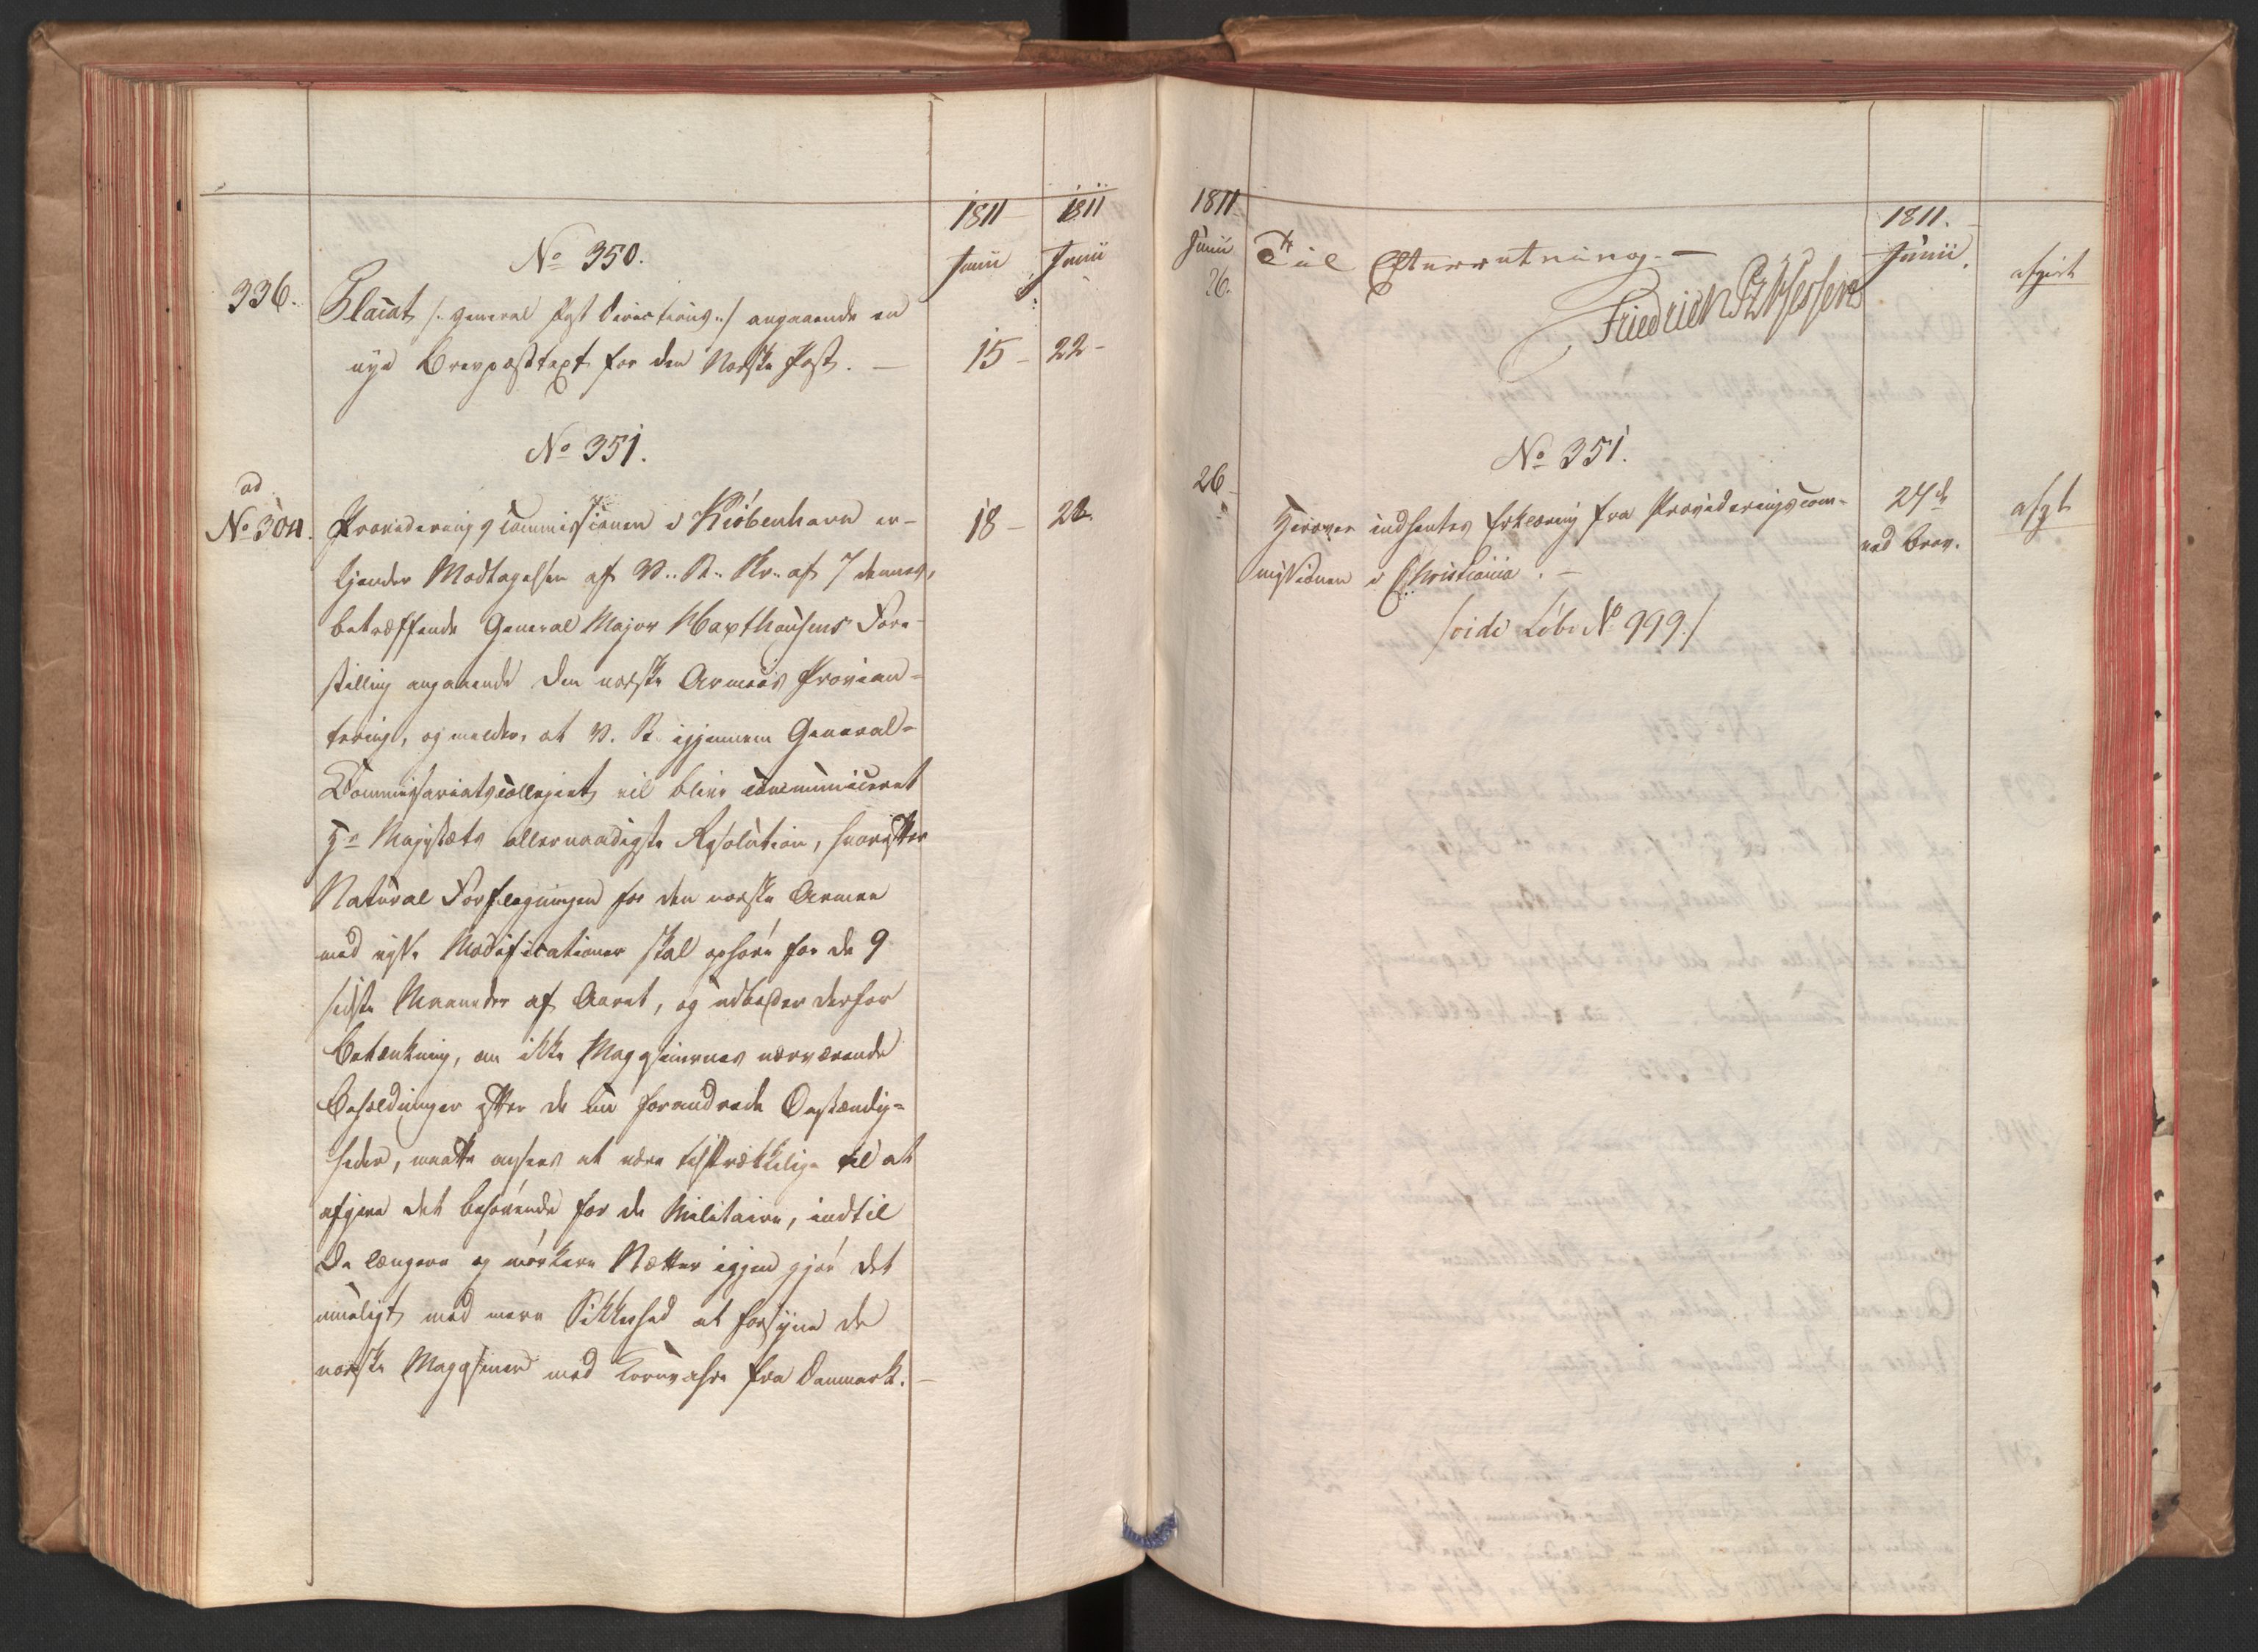 1811
1811
Junii
Junii
No 350.
336.
Placat /: General Post Directions :/ angaaende en
nye Brevposttaxt for den Norske Post. —
15 —
22 —
No 351.
ad
No 304.
Provideringscommissionen i Kiöbenhavn er-
kjender Modtagelsen af V. R. Skr. af 7 dennes,
18 —
22.
betræffende General Major Haxthausens Fore-
stilling angaaende den norske Armees Provian-
tering, og melder, at V. R. igjennem General-
Commissariatscollegiet vil blive communiceret
Hs Majestæts allernaadigste Resolution, hvorefter
Natural Forplegningen for den norske Armee
med nogle Modificationer skal ophöre for de 9
sidste Maaneder af Aaret, og udbeder derfor
Betænkning, om ikke Magasinernes nærværende
Beholdninger efter de nu forandrede Omstændig-
heder, maatte ansees at være tilstrækkelige til at
afgive det behövende for de Militaire, indtil
de længere og mörkere Nætter igjen gjör det
mueligt med mere Sikkerhed at forsyne de
norske Magasiner med Kornvahre fra Danmark. —
1811
Junii
26.
Til Efterretning. —
Friedrich PzHessen
1811.
Junii.
afgjort
No 351.
26
Herover indhentes Erklæring fra Provideringscom-
missionen i Christiania. —
/vide Löbe No 999./
27de
ved Brev.
afgt